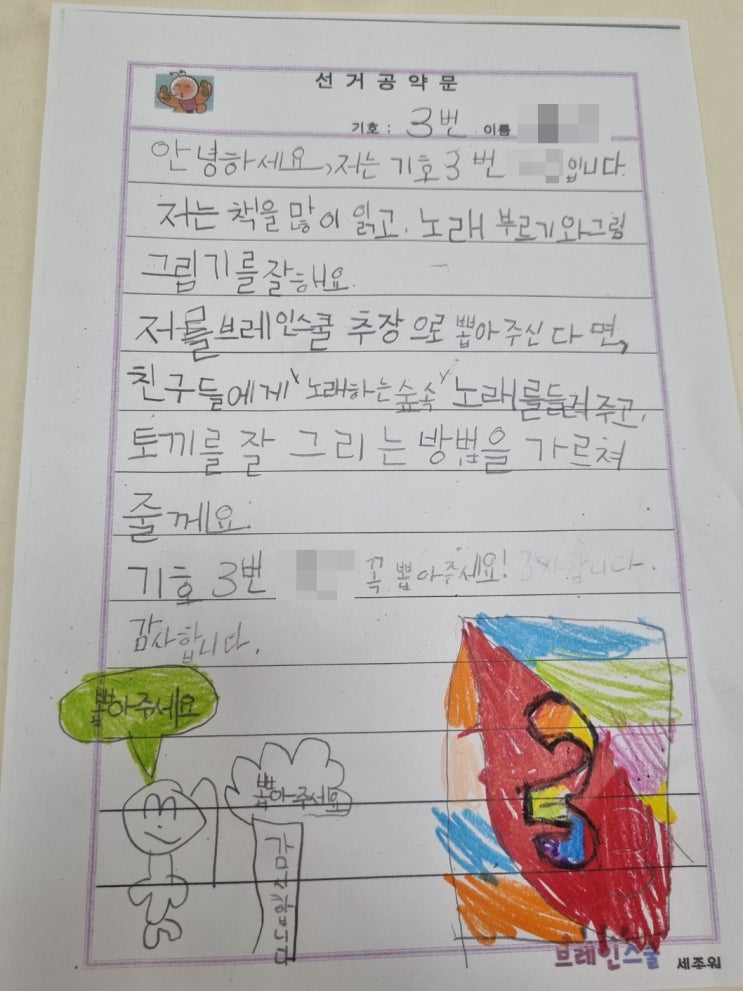 선거공약문
기호 : 3번 이름
안녕하세요, 저는 기호 3번 입니다.
저는 책을 많이 읽고, 노래 부르기와 그림
그립기를 잘해요.
저를 브레인스쿨 추장으로 뽑아 주신다면,
친구들에게 "노래하는 숲속" 노래를 들려주고,
토끼를 잘 그리는 방법을 가르쳐
줄께요.
기호 3번 꼭 뽑아주세요! 감사합니다.
감사합니다.
뽑아주세요
뽑아주세요
감사합니다
3
브레인스쿨 세종원